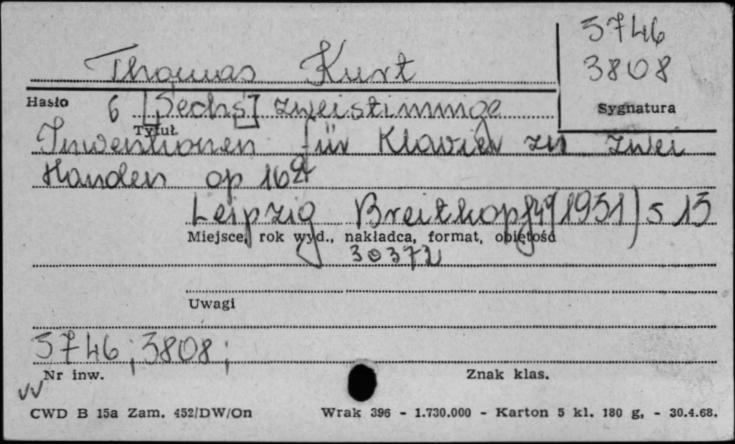 5746
3808
Thomas Kurt
Hasło
Sygnatura
6 [Sechs] zweistimmige
Tytuł
Inwentionen für Klavier zu zwei
Handen op 16a
Leipzig Breitkopf 49(1951) s 15
Miejsce, rok wyd., nakładca, format, objętość
30372
Uwagi
5746; 3808;
Nr inw.
Znak klas.
CWD B 15a Zam. 452/DW/On Wrak 396 - 1.730.000 - Karton 5 kl. 180 g, - 30.4.68.